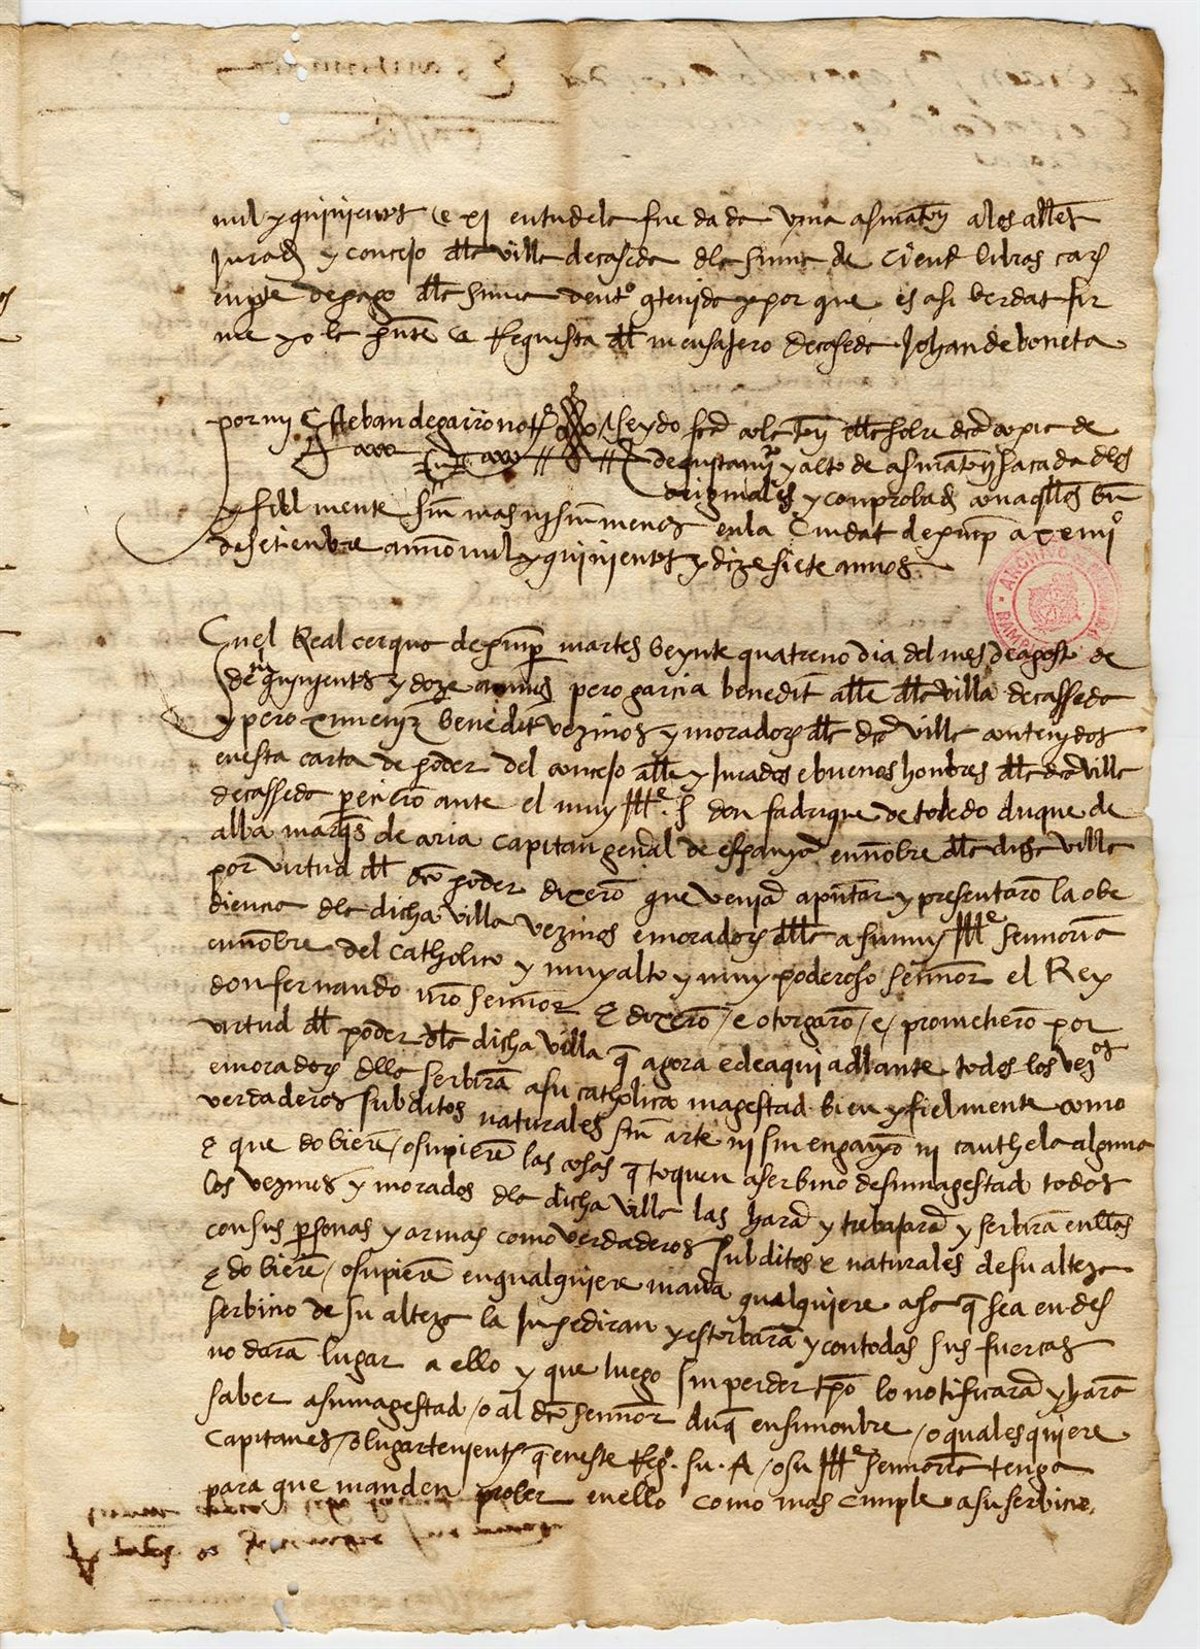 mil y quinientos e xi en tudela fue dada vna asinaton a los alldes
Jurads y concejo dla villa de caseda dla suma de Cient libras carls
en pte de pago dla suma dento qtenida y por que es asi berdat fir
me yo la pnte a Requesta dl mensajero de caseda Johan de boneta
por mi Esteban de garro not
seydo la sobre dca copia de
y alto de asinaton sacada dlos
originales y conprobads con aqllos bn
y fielmente sin mas ni sin menos en la Ciudat de panp a
de setienbre anno mil y quinientos y dize siete annos.
En el Real cerquo de panp martes beynte quatreno dia del mes de agosto de
de quinientos y doze annos pero garcia benedit allde dla villa de casseda
y pero ximeniz benedit vezinos y moradors dla dca villa contenydos
en esta carta de poder del concejo alldes y Jurados e buenos honbres dla dca villa
de casseda parecieron ante el muy Ille. S. don fadrique de toledo duque de
alba marqs de coria capitan general de espanya en nonbre dla dicha villa
por virtud dl dco poder dixero que venian a pntar y presentaro la obe
diencia dla dicha villa vezinos e moradors dlla a su muy Ille sennoria
en nonbre del catholico y muy alto y muy poderoso sennor el Rey
don fernando nro sennor E dixero / e otorgaro / e / prometiero por
virtud dl poder dla dicha villa q agora e de aqui adlante todos los vezos
e moradors dlla serbira a su catholica magestad bien y fielmente como
verdaderos subditos naturales sin arte ni sin enganyo ni cauthela alguna
E que do biere / o supiere las cosas q toquen a serbicio de su magestad todos
los vezinos y morados dla dicha villa las hara y trabajara y serbira en llas
con sus psonas y armas como verdaderos subditos e naturales de su alteza
E do biere / o supiere en qualquiere mana qualquiere cosa q sea en des
serbicio de su alteza la Inpediran y estorbara y con todas sus fuercas
no dara lugar a ello y que luego sin perder tpo lo notificara y hara
saber a su magestad / o al dco sennor duq en su nonbre / o qualesquiere
capitanes / o lugartenients q en este Reo. su. A / o su Ille sennoria tenga
para que manden prober en ello como mas cunple a su serbicio.